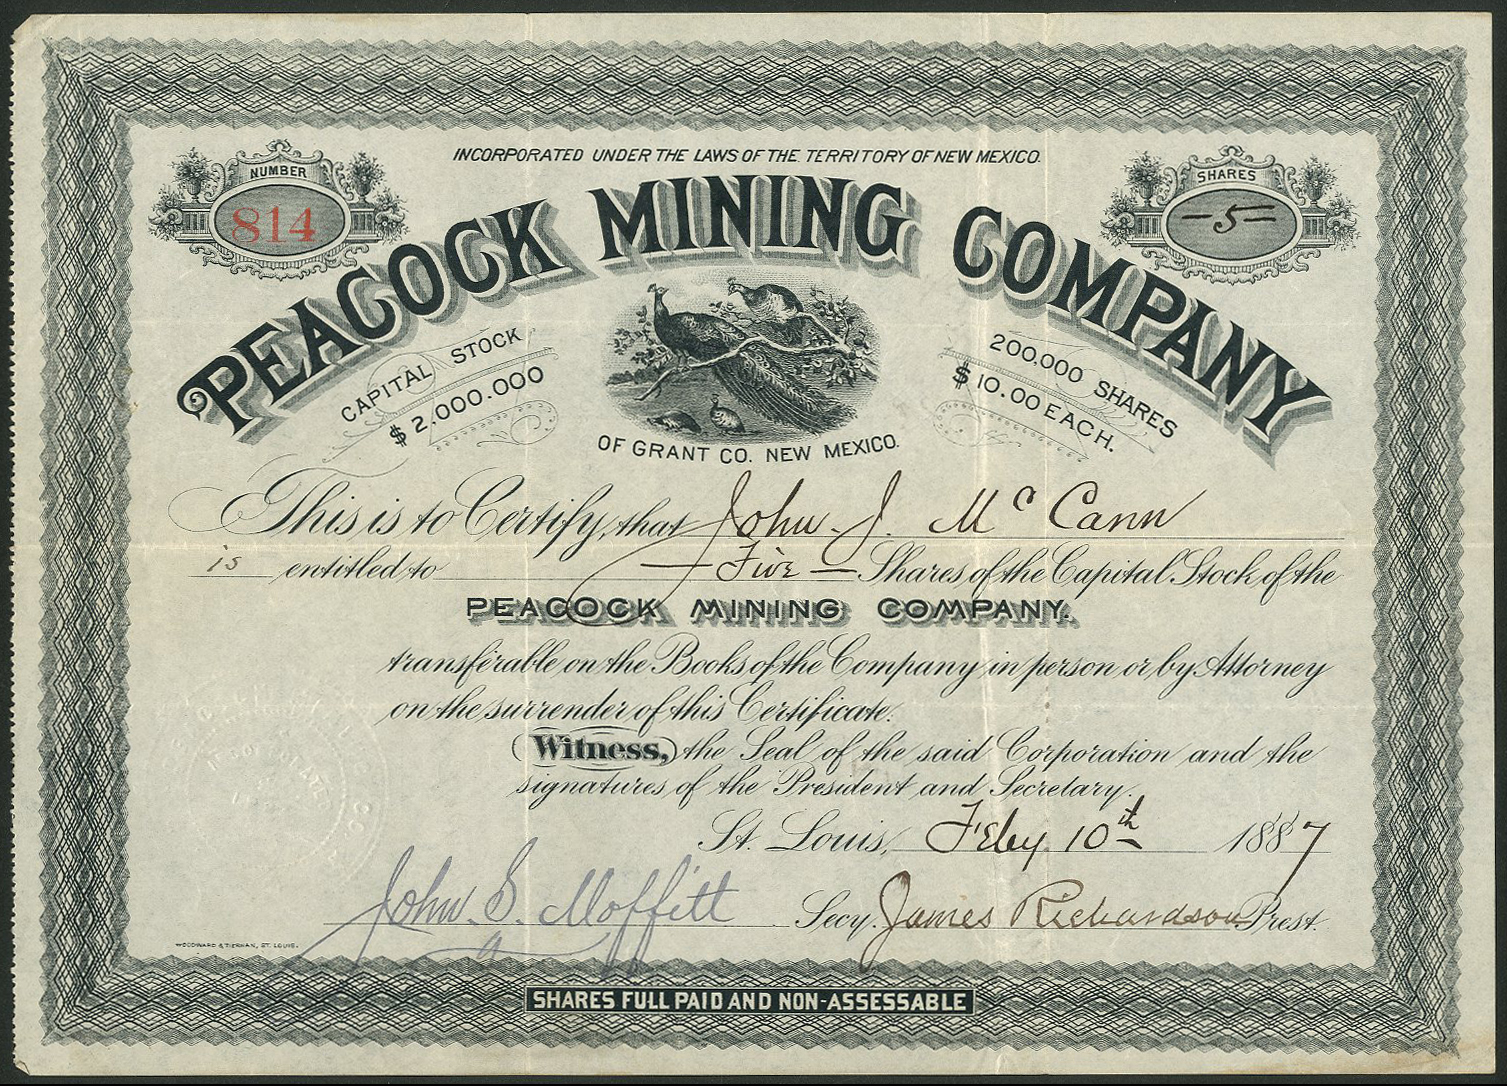 INCORPORATED UNDER THE LAWS OF THE TERRITORY OF NEW MEXICO.
NUMBER
814
SHARES
-5-
PEACOCK MINING COMPANY
CAPITAL STOCK
$2,000.000
200,000 SHARES
$10.00 EACH.
OF GRANT CO. NEW MEXICO.
This is to Certify, that John J. McCann
is entitled to — Five — Shares of the Capital Stock of the
PEACOCK MINING COMPANY.
transferable on the Books of the Company in person or by Attorney
on the surrender of this Certificate.
Witness, the Seal of the said Corporation and the
signatures of the President and Secretary.
St. Louis, Feby 10th 1887
John S. Moffitt Secy. James Richardson Prest.
WOODWARD & TIERNAN, ST. LOUIS.
SHARES FULL PAID AND NON-ASSESSABLE